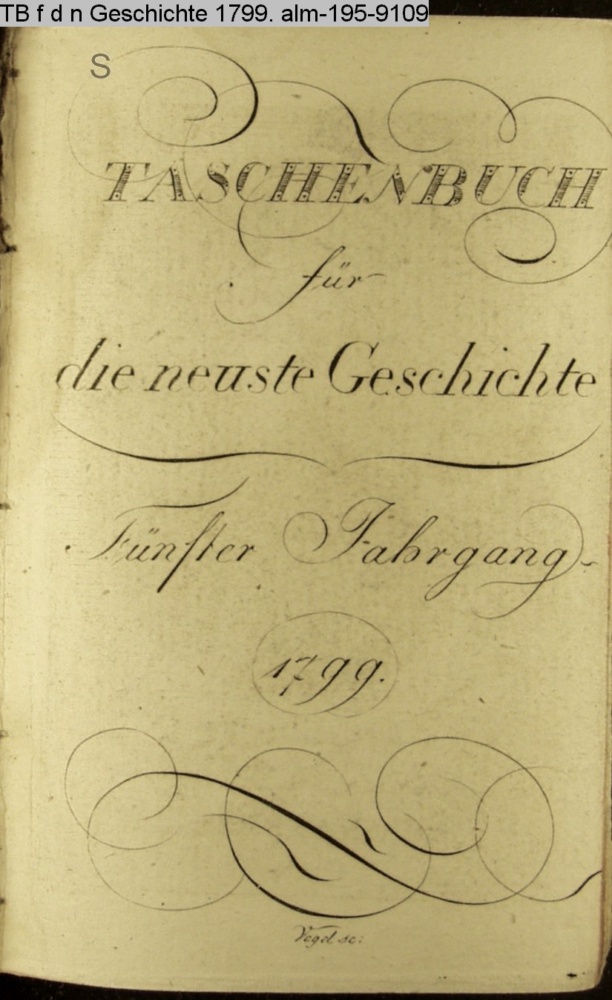 TB f d n Geschichte 1799. alm-195-9109
S
TASCHENBUCH
für
die neuste Geschichte
Fünfter Jahrgang
1799.
Vogel sc: